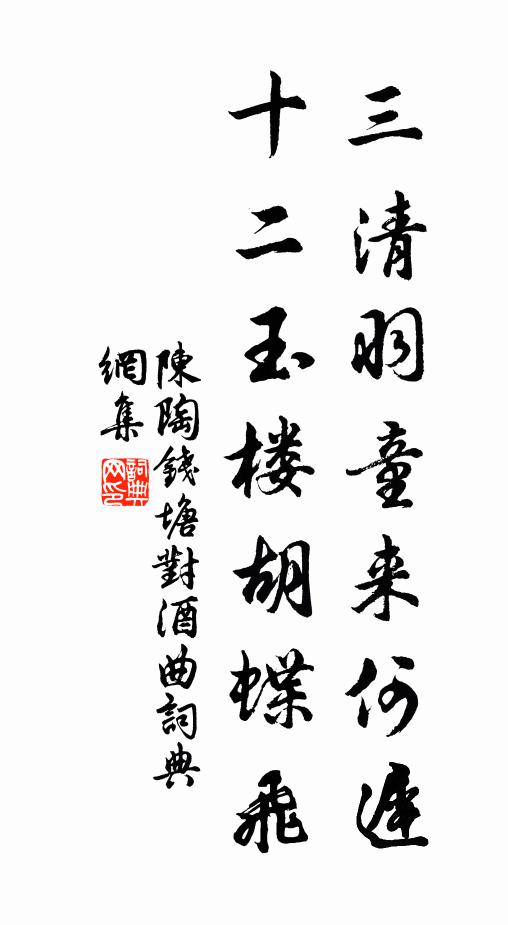 三清羽童来何遲
十二玉楼胡蝶飛
陳陶錢塘對酒曲詞典
網集
詞典網印